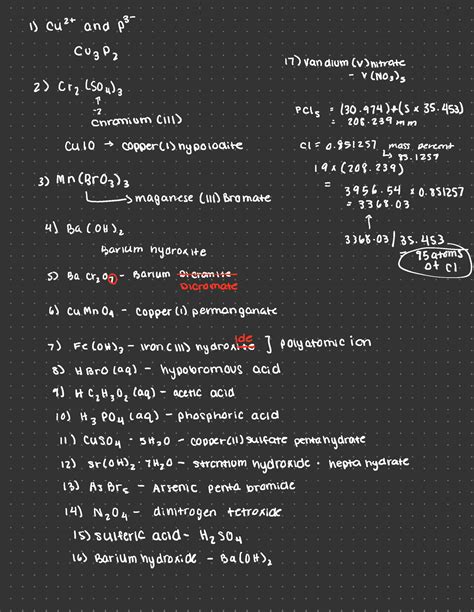 1) Cu²⁺ and P³⁻
Cu₃P₂
2) Cr₂(SO₄)₃
↑
-2
Chromium (III)
CuIO → copper(I) hypoiodite
3) Mn(BrO₃)₃
→ maganese (III) Bromate
4) Ba(OH)₂
Barium hydroxite
5) BaCr₂O₇ - Barium
DICROMATE
6) CuMnO₄ - copper(I) permanganate
7) Fe(OH)₃ - iron(III) hydroxide ] polyatomic ion
8) HBrO (aq) - hypobromous acid
9) HC₂H₃O₂ (aq) - acetic acid
10) H₃PO₄ (aq) - phosphoric acid
11) CuSO₄ · 5H₂O - copper(II) sulfate pentahydrate
12) Sr(OH)₂ · 7H₂O - strontium hydroxide · hepta hydrate
13) AsBr₅ - Arsenic penta bromide
14) N₂O₄ - dinitrogen tetroxide
15) sulferic acid - H₂SO₄
16) Barium hydroxide - Ba(OH)₂
17) Vandium (V) nitrate
- V(NO₃)₅
PCl₅ = (30.974)+(5 x 35.453)
= 208.239 mm
Cl = 0.851257 mass percent
↳ 85.1257
19 x (208.239)
= 3956.54 x 0.851257
= 3368.03
↑
3368.03 / 35.453
= 95 atoms
of Cl